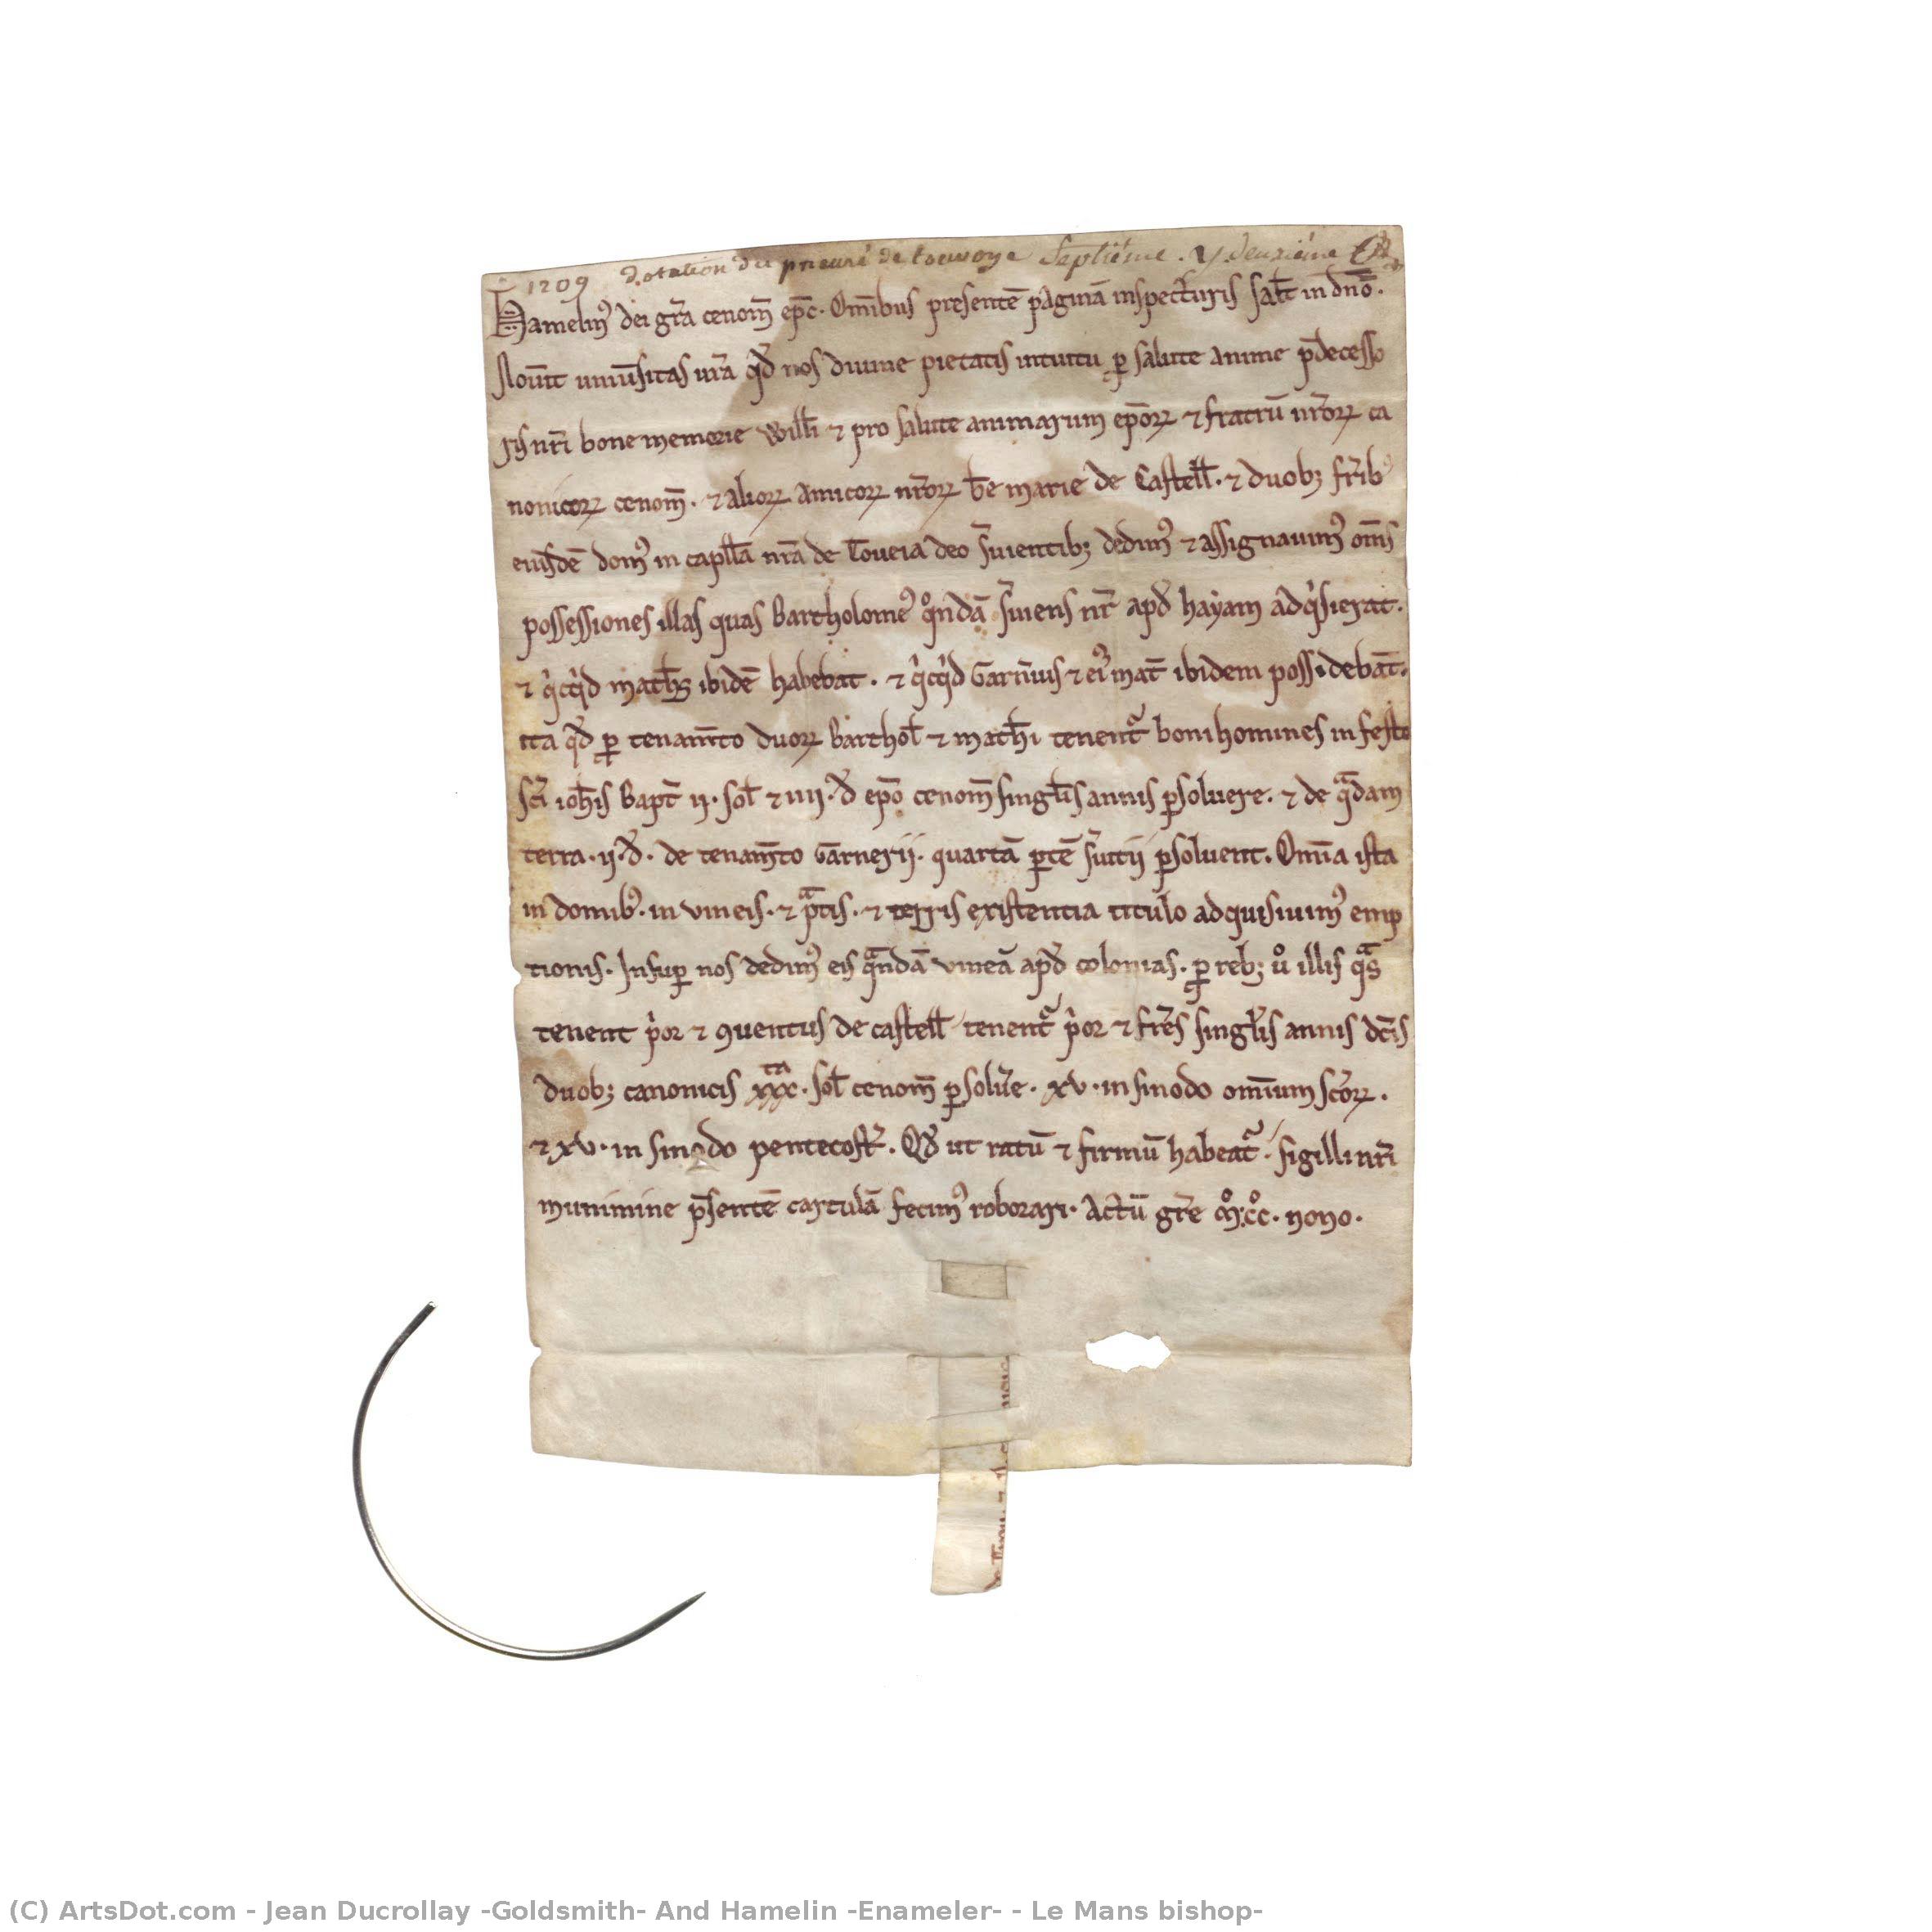 1209 dotation du prieuré de touvoye Septième . y deuxième
Hamelinꝰ dei gr̄a cenom̄ ep̄c. Om̄ibus presentē paginā inspecturis sal̄t in dn̄o.
Nov̄it univ̄sitas vr̄a qd̄ nos divine pietatis intuitu ꝓ salute anime p̄decesso
ris nr̄i bone memorie Will̄i ⁊ pro salute animarum ep̄oꝝ ⁊ fratrū nr̄oꝝ ca
nonicoꝝ cenom̄. ⁊ alioꝝ amicoꝝ nr̄oꝝ b̄e marie de Castell̄. ⁊ duobꝫ fr̄ibꝰ
eiusdē domꝰ in capll̄a nr̄a de Toveia deo s̄vientibꝫ dedimꝰ ⁊ assignavimꝰ om̄s
possessiones illas quas Bartholomeꝰ qͦndā s̄viens nr̄ apd̄ hayam adqͥsierat.
⁊ qͥcqͥd math̄s ibidē habebat. ⁊ qͥcqͥd Garn̄ius ⁊ eiꝰ mat̄ ibidem possidebāt.
ita qd̄ ꝓ tenam̄to duoꝝ barthol̄ ⁊ math̄i tenent᷑ boni homines in festo
sc̄i ioh̄is bapt̄ ii. sol̄ ⁊ iiii. d̄ ep̄o cenom̄ singl̄is annis ꝑsolvere. ⁊ de qͣdam
terra. ii. d̄. de tenam̄to Garnerii. quartā ꝑtē s̄vitii ꝑsolvent. Om̄ia ista
in domibꝰ. in vineis. ⁊ pͣtis. ⁊ terris existentia titulo adquisivimꝰ emp
tionis. Insuꝑ nos dedimꝰ eis qͣndā vineā apd̄ colonias. ꝓ rebꝫ vͦ illis qͣs
tenent pͥor ⁊ ꝯventus de castell̄ tenent᷑ pͥor ⁊ fr̄es singl̄is annis dc̄is
duobꝫ canonicis xxxᵗᵃ. sol̄ cenom̄ ꝑsolv̄e. xv. in sinodo om̄ium sc̄oꝝ.
⁊ xv. in sinodo pentecost̄. Qd̄ ut ratū ⁊ firmū habeat᷑. sigilli nr̄i
munimine p̄sentē cartulā fecimꝰ roborari. Actū gr̄e mͦ.ccͦ. nono.
(C) ArtsDot.com - Jean Ducrollay -Goldsmith- And Hamelin -Enameler- - Le Mans bishop-